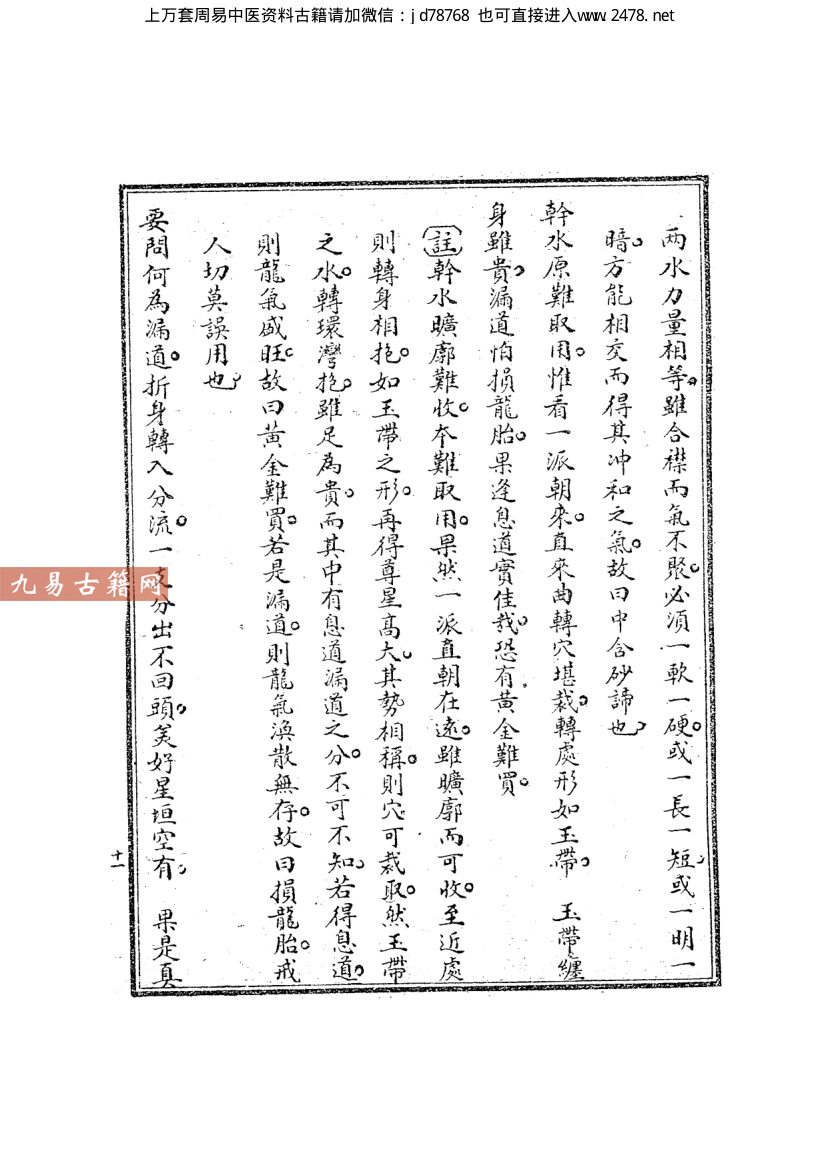 上万套周易中医资料古籍请加微信：jd78768 也可直接进入www.2478.net
两水力量相等。雖合襟而氣不聚。必須一軟一硬。或一長一短。或一明一
暗。方能相交而得其冲和之氣。故曰中含砂諦也。
幹水原難取用。惟看一派朝來。直來曲轉穴堪裁。轉處形如玉帶。 玉帶纏
身雖貴。漏道怕損龍胎。果逢息道實佳哉。恐有黃金難買。
註幹水曠廓難收。本難取用。果然一派直朝在遠。雖曠廓而可收。至近處
則轉身相抱。如玉帶之形。再得尊星高大。其勢相稱。則穴可裁取。然玉帶
之水。轉環灣抱。雖足為貴。而其中有息道漏道之分。不可不知。若得息道。
則龍氣盛旺。故曰黃金難買。若是漏道。則龍氣渙散無存。故曰損龍胎。戒
人切莫誤用也。
要問何為漏道。折身轉入分流。一支分出不回頭。美好星垣空有。 果是真
十一
九易古籍网